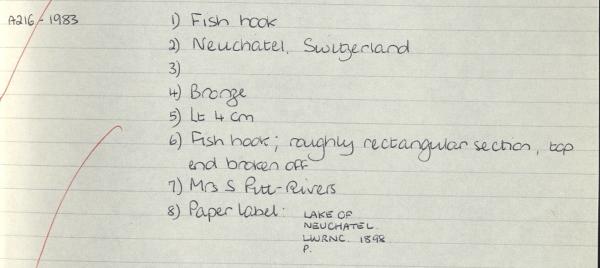 A216 - 1983
1) Fish hook
2) Neuchatel, Switzerland
3)
4) Bronze
5) Lt 4 cm
6) Fish hook; roughly rectangular section, top
end broken off
7) Mrs S Pitt-Rivers
8) Paper label: LAKE OF
NEUCHATEL.
LWRNC. 1898.
P.